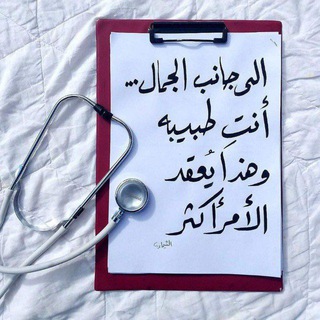 الى جانب الجمال...
أنتِ طبيبه
وهذا يُعقد
الأمرأكثر